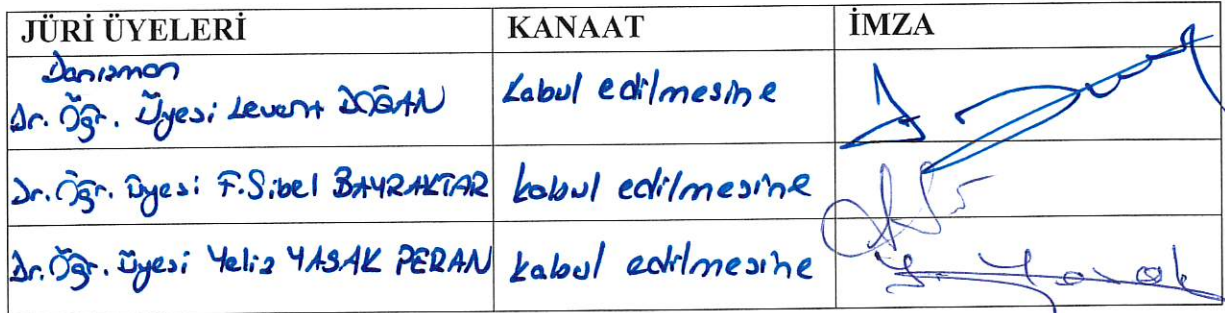 JÜRİ ÜYELERİ KANAAT İMZA
Danışman
Dr. Öğr. Üyesi Levent DOĞAN kabul edilmesine
Dr. Öğr. Üyesi F. Sibel BAYRAKTAR kabul edilmesine
Dr. Öğr. Üyesi Yeliz YASAK PERAN kabul edilmesine
Y. Yasak